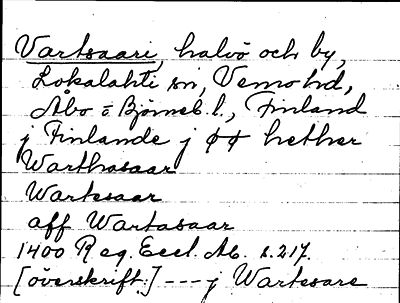 Vartsaari, halvö och by,
Lokalahti sn, Vemo hd,
Åbo o Björneb. l., Finland
j Finlande j øø hether
Warthasaar
Wartesaar
aff Wartasaar
1400 Reg. Eccl. Ab. s. 217.
[överskrift:] --- j Wartesare